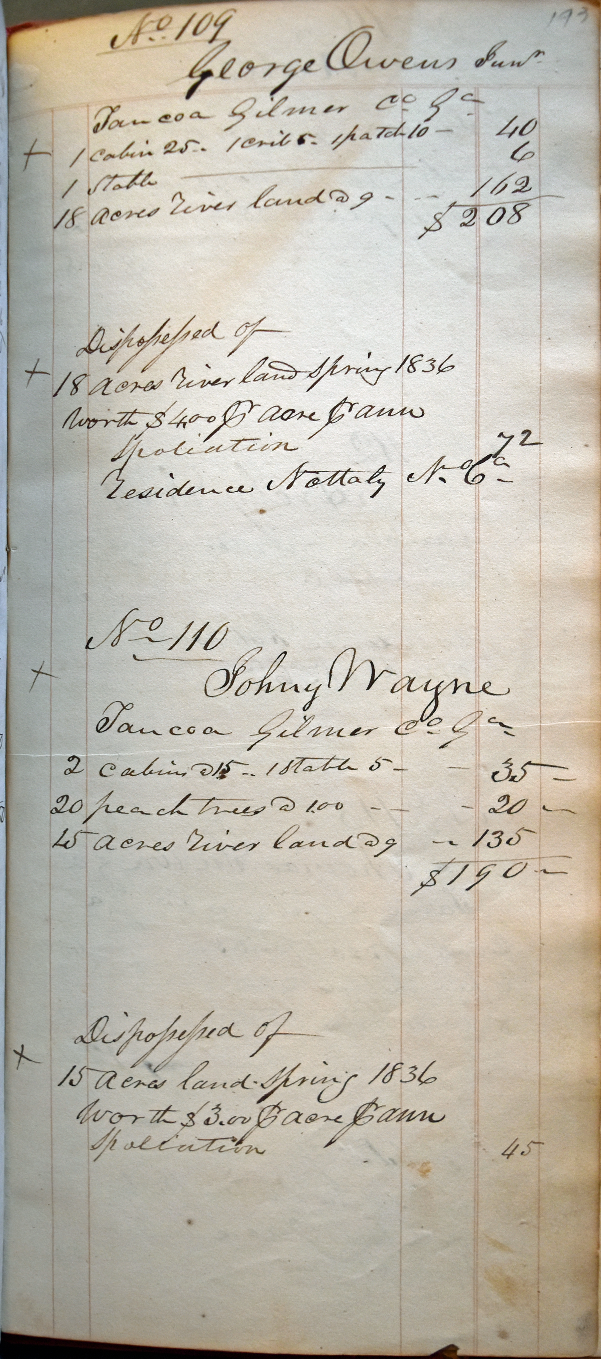 193
No. 109
George Owens Junr
Taucoa Gilmer Co Ga
+ 1 cabin 25 - 1 crib 5 - 1 patch 10 - 40
1 Stable 6
18 acres river land @ 9 - - 162
$208
Dispossessed of
+ 18 acres river land spring 1836
Worth $4.00 ⅌ acre ⅌ ann
Spoliation 72
residence Nottaly No Ca
No 110
+ Johny Wayne
Taucoa Gilmer Co Ga
2 cabins @ 15 - 1 Stable 5 - - 35 -
20 peach trees @ 1.00 - - - 20 -
15 acres river land @ 9 - 135
$190 -
Dispossessed of
+ 15 acres land spring 1836
Worth $3.00 ⅌ acre ⅌ ann
Spoliation 45